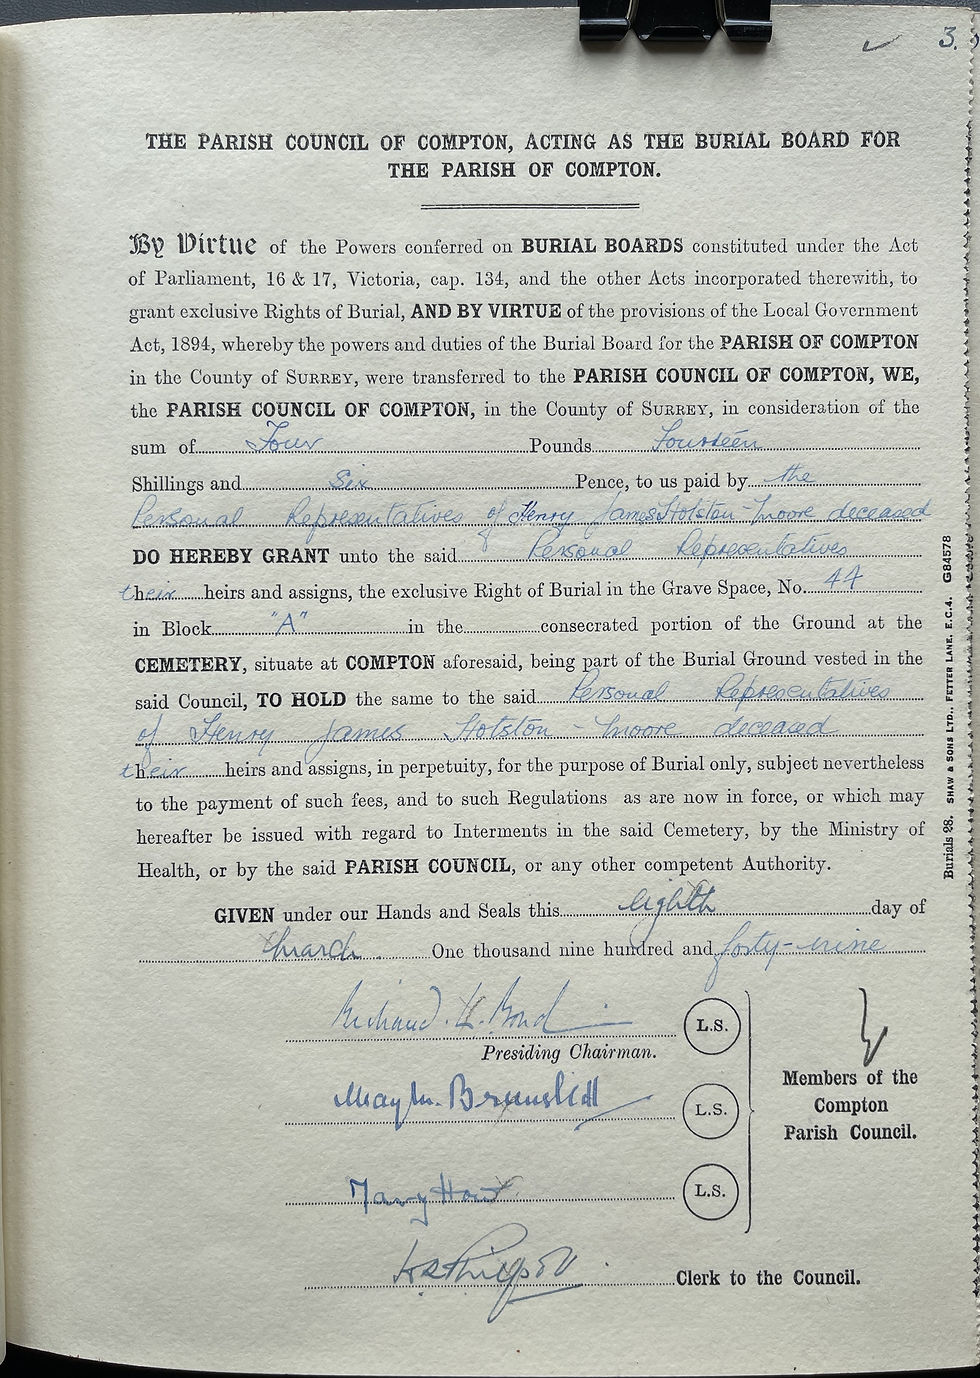 3.
THE PARISH COUNCIL OF COMPTON, ACTING AS THE BURIAL BOARD FOR
THE PARISH OF COMPTON.
By Virtue of the Powers conferred on BURIAL BOARDS constituted under the Act
of Parliament, 16 & 17, Victoria, cap. 134, and the other Acts incorporated therewith, to
grant exclusive Rights of Burial, AND BY VIRTUE of the provisions of the Local Government
Act, 1894, whereby the powers and duties of the Burial Board for the PARISH OF COMPTON
in the County of SURREY, were transferred to the PARISH COUNCIL OF COMPTON, WE,
the PARISH COUNCIL OF COMPTON, in the County of SURREY, in consideration of the
sum of Four Pounds Fourteen
Shillings and Six Pence, to us paid by the
Personal Representatives of Henry James Hotston-Moore deceased
DO HEREBY GRANT unto the said Personal Representatives
their heirs and assigns, the exclusive Right of Burial in the Grave Space, No. 44
in Block "A" in the consecrated portion of the Ground at the
CEMETERY, situate at COMPTON aforesaid, being part of the Burial Ground vested in the
said Council, TO HOLD the same to the said Personal Representatives
of Henry James Hotston-Moore deceased
their heirs and assigns, in perpetuity, for the purpose of Burial only, subject nevertheless
to the payment of such fees, and to such Regulations as are now in force, or which may
hereafter be issued with regard to Interments in the said Cemetery, by the Ministry of
Health, or by the said PARISH COUNCIL, or any other competent Authority.
GIVEN under our Hands and Seals this eighth day of
March. One thousand nine hundred and forty-nine
Richard H. Bond L.S.
Presiding Chairman.
May L.S.
Mary L.S.
Members of the
Compton
Parish Council.
Clerk to the Council.
Burials 28. SHAW & SONS LTD., FETTER LANE, E.C.4. G84578